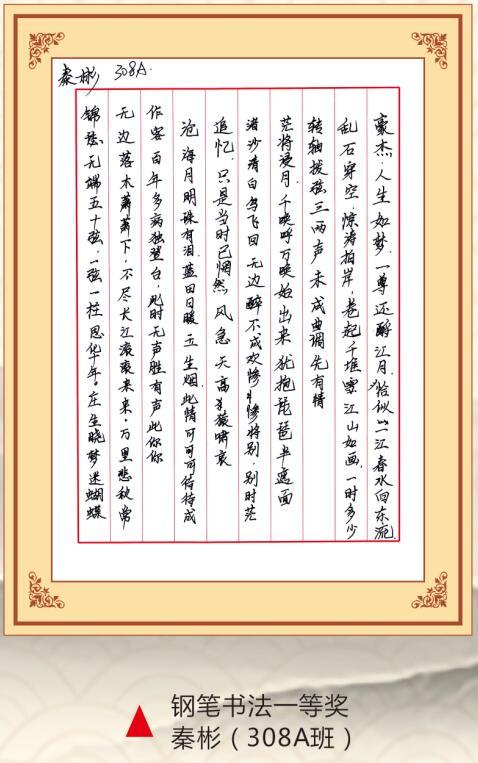 秦彬 308A.
锦瑟无端五十弦,一弦一柱思华年.庄生晓梦迷蝴蝶
无边落木萧萧下,不尽长江滚滚来来.万里悲秋常
作客百年多病独登台,此时无声胜有声此你你
沧海月明珠有泪.蓝田日暖玉生烟.此情可可可待待成
追忆.只是当时已惘然 风急天高猿啸哀
渚沙清白鸟飞回 无边醉不成欢惨惨将别,别时茫
茫将浸月.千唤呼万唤始出来 犹抱琵琶半遮面
转轴拨弦三两声未成曲调先有情
乱石穿空,惊涛拍岸,卷起千堆雪江山如画,一时多少
豪杰,人生如梦,一尊还酹江月.恰似一江春水向东流.
钢笔书法一等奖
秦彬（308A班）